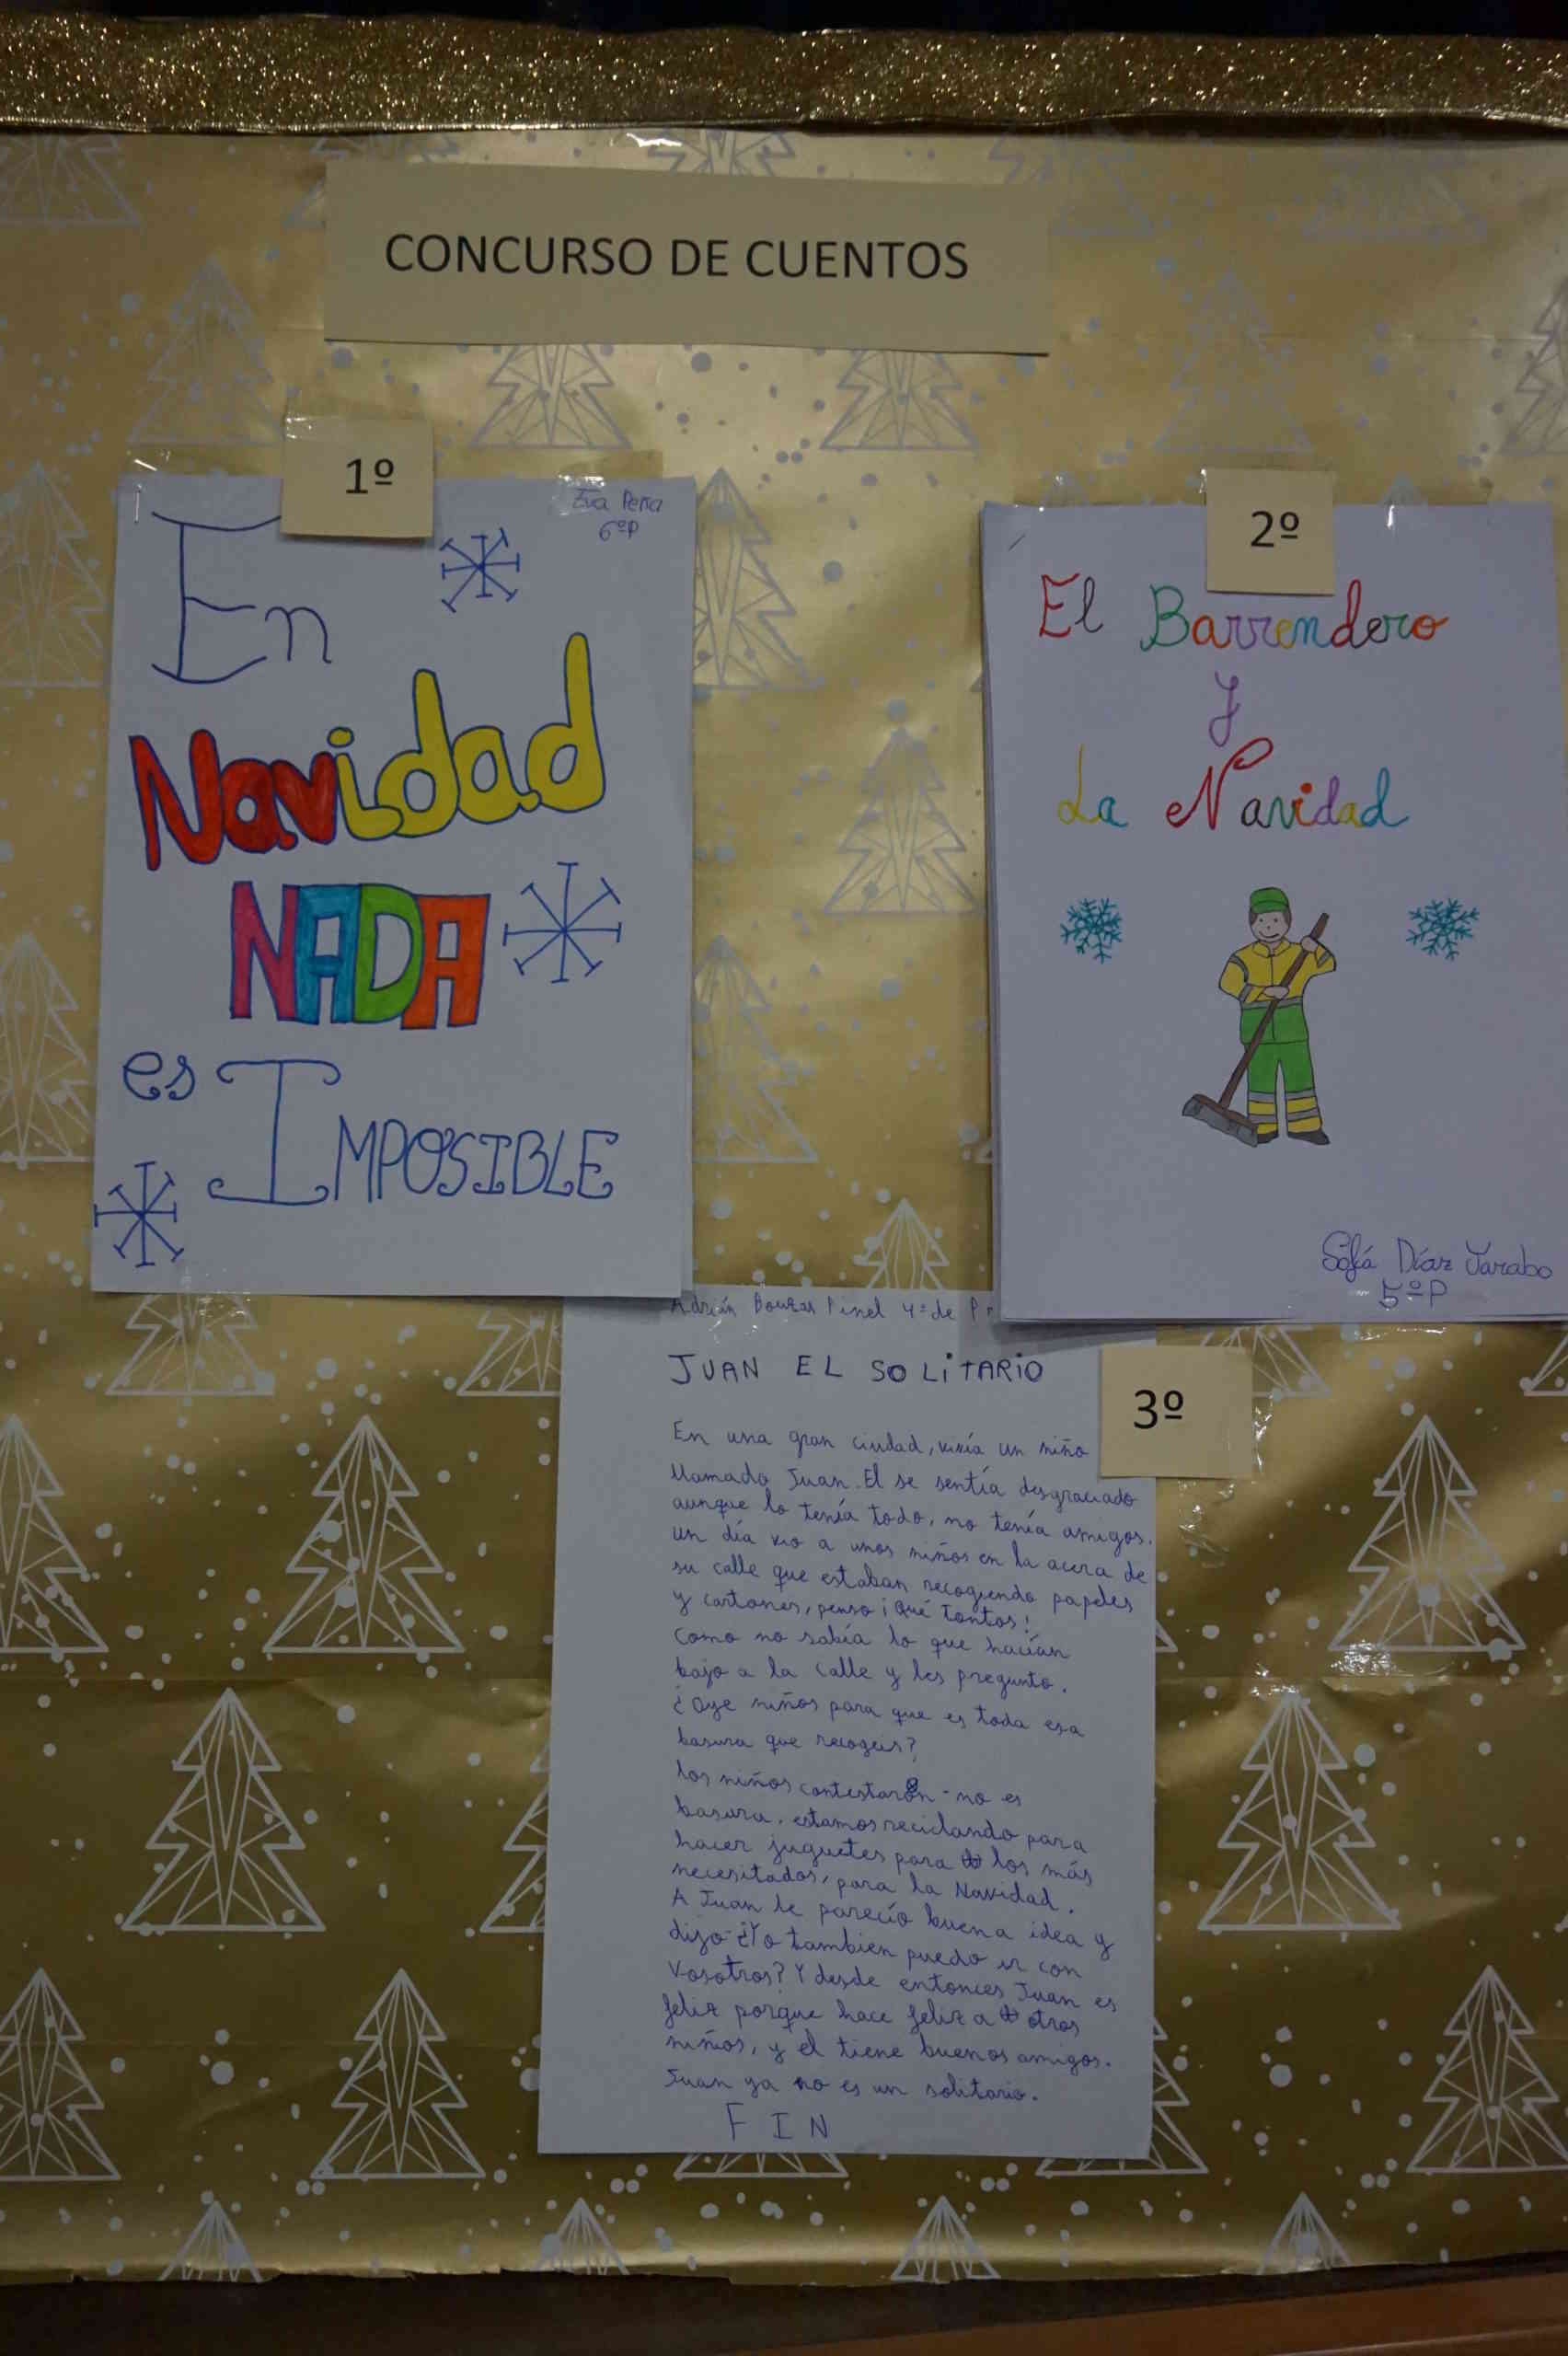 CONCURSO DE CUENTOS
1º
Eva Peña
6ºP
En
Navidad
NADA
es IMPOSIBLE
2º
El Barrendero
y
La Navidad
Sofía Díaz Jarabo
5ºP
3º
Adrián Pinel 4º de P
JUAN EL SOLiTARiO
En una gran ciudad, vivía un niño
llamado Juan. El se sentía desgraciado
aunque lo tenía todo, no tenía amigos.
un día vio a unos niños en la acera de
su calle que estaban recogiendo papeles
y cartones, penso ¡Qué tontos!
como no sabía lo que hacían
bajo a la calle y les pregunto.
¿Oye niños para que es toda esa
basura que recogeis?
los niños contestaron - no es
basura, estamos reciclando para
hacer juguetes para los más
necesitados, para la Navidad.
A Juan le parecío buena idea y
dijo-¿Yo tambien puedo ir con
vosotros? Y desde entonces Juan es
feliz porque hace feliz a otros
niños, y el tiene buenos amigos.
Juan ya no es un solitario.
FIN